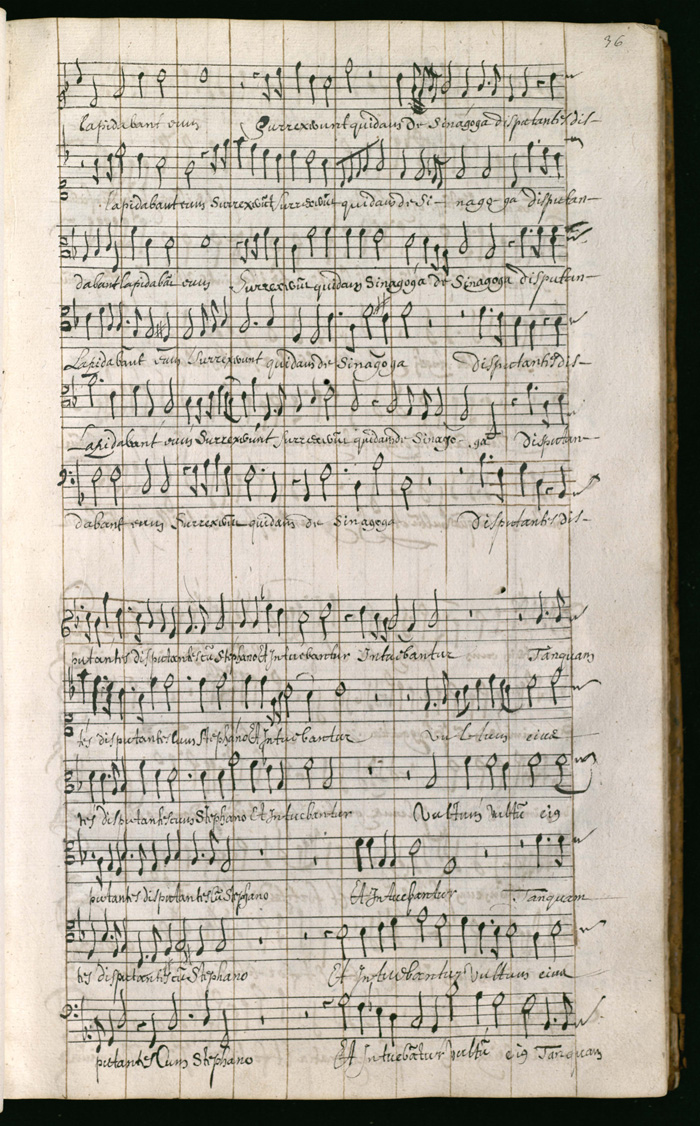 36
lapidabant eum Surrexerunt quidam De Sinagoga disputantes dis-
lapidabant eum Surrexerũt surrexerũt quidam de Si- nago- ga disputan-
dabant lapidabãt eum Surrexerũt quidam Sinagoga de Sinagoga disputan-
Lapidabant eum Surrexerunt quidam de Sinagoga disputantes dis-
Lapidabant eum Surrexerunt surrexerũt quidam de Sinago- ga disputan-
dabant eum Surrexerũt quidam de Sinagoga disputantes dis-
putantes disputantes cũ Stephano Et Intuebantur Intuebantur Tanquam
tes disputantes Cum Stephano Et Intuebantur vultum eius
tes disputantes cum Stephano Et Intuebantur Vultum vultũ ei9
putantes disputantes cũ Stephano Et Intuebantur Tanquam
tes disputantes cũ Stephano Et Intuebantur Vultum eius
putantes Cum Stephano Et Intuebãtur vultũ ei9 Tanquam